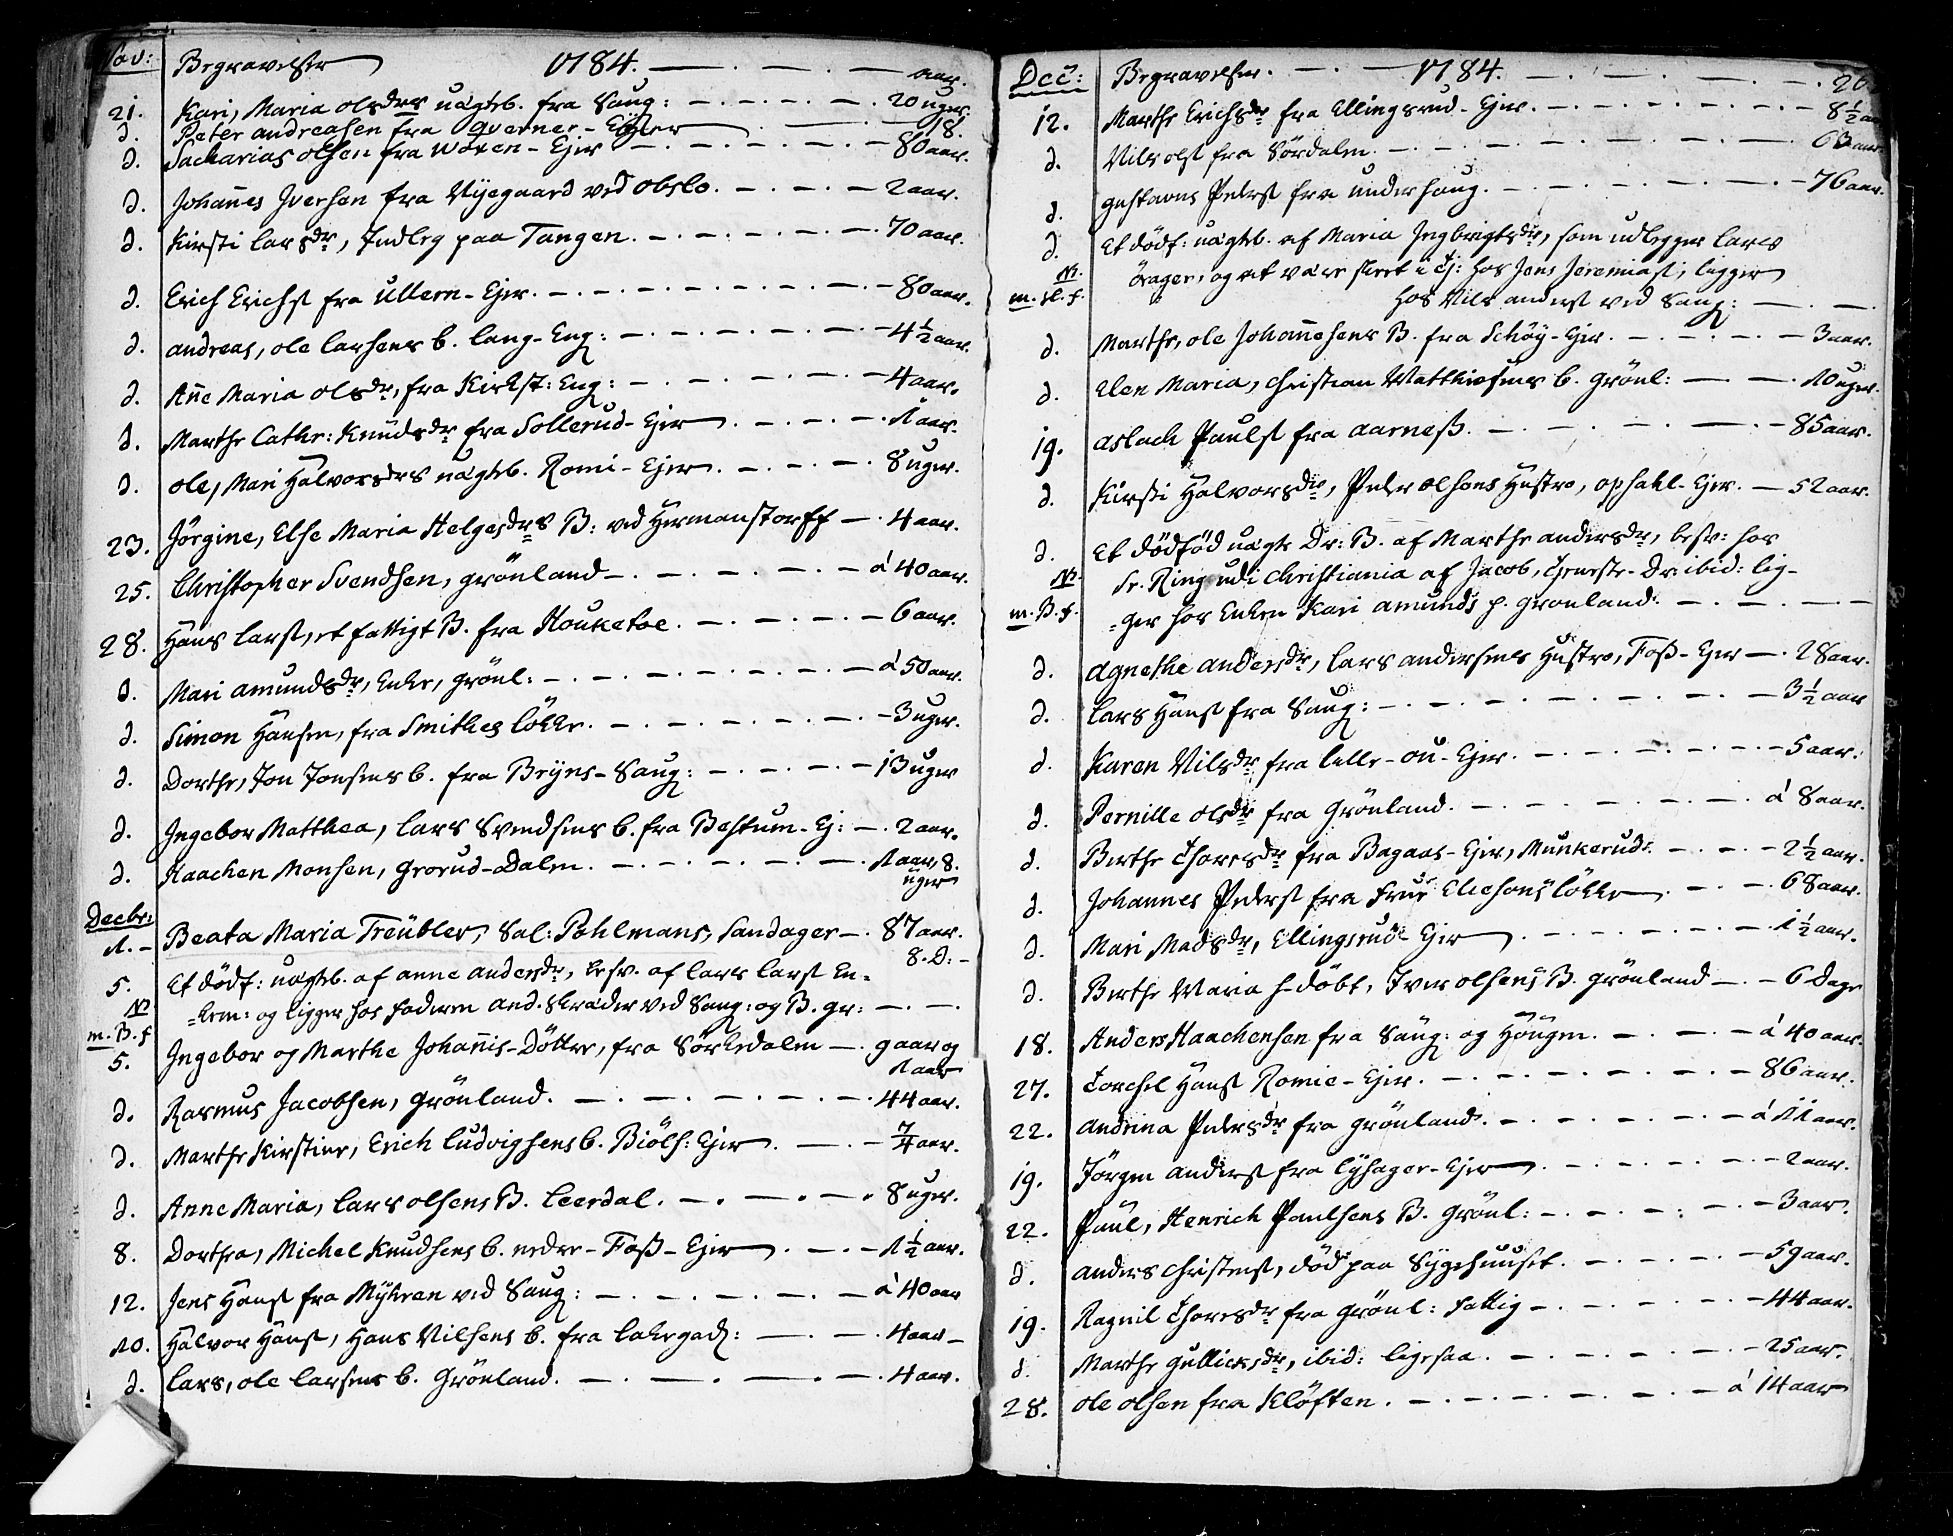 Nov: Begravelser 1784. aar.
21. Kari, Maria olsdrs uægteb. fra Saug: 20 uger
d. Peter andreasen fra qverner-Ejer 18.
d. Sacharias olsen fra Woxen-Ejer 80 aar.
d. Johannes Iversen fra Nyegaard ved obslo. 2 aar.
d. Kirsti larsdr, Indleg paa Tangen. 70 aar.
d. Erich Erichs fra Ullern-Ejer. 80 aar.
d. andreas, ole larsens b. lang-Eng: 4½ aar.
d. Anne Maria olsdr, fra Kirkst: Eng: 4 aar.
d. Marthe Cathr: Knudsdr fra Sollerud-Ejer 1 aar.
d. ole, Mari Halvorsdrs uægteb. Romi-Ejer. 8 uger.
23. Jørgine, Else Maria Helgesdrs B: ved Hermanstorff 4 aar.
25. Christopher Svendsen, grönland á 40 aar.
28. Hans lars, et fattigt B. fra Houketoe. 6 aar.
d. Mari amundsdr, Enke, grönl: á 50 aar.
d. Simon Hansen, fra Smithes lökke. 3 uger.
d. Dorthe, Jon Jonsens b. fra Bryns-Saug: 13 uger
d. Ingebor Matthea, lars Svendsens b. fra Bestum-Ej: 2 aar.
d. Haachen Monsen, Grorud-Dalen. 1 aar 8.
uger
Decbr:
1. Beata Maria Treubler, Sal: Pohlmans, Sandager 87 aar.
8. D:
5. Et dödf: uægteb. af anne andersdr, besv. af lars lars En-
NB
m. B. f. og ligger hos faderen and. Skræder ved Saug: og B. gr:
5. Ingebor og Marthe Johannis-Döttre, fra Sörkedalen 9 aar og
1 aar
d. Rasmus Jacobsen, Grönland. 44 aar.
d. Marthe Kirstine, Erich ludvigsens b. Biöls: Ejer 7/4 aar.
d. Anne Maria, lars olsens B. leerdal. 8 uger.
8. Dorthea, Michel Knudsens b. nedre-Foss-Ejer 1½ aar.
12. Jens Hans fra Myhren ved Saug: á 40 aar
10. Halvor Hans, Hans Nilsens b. fra lakegad: 4 aar
d. lars, ole larsens b. Grönland. 4 aar.
Dec: Begravelser. 1784. 26
12. Marthe Erichsdr fra Ellingsrud-Ejer. 8½ aar
d. Nils ols fra Sördalen. 63 aar.
d. gustavus Peders fra underhaug. 76 aar.
d. Et dödf: uægteb. af Maria Ingbrigtsdr, som udlegger lars
NB. og at være skeet i Tj: hos Jens Jeremias; ligger
m. sl. f. hos Nils anders ved Saug:
d. Marthe, ole Johannesens B. fra Schöy-Ejer. 3 aar.
d. Elen Maria, Christian Matthiesens b. Grönl: 10 uger.
19. aslach Pauls fra aarness. 85 aar.
d. Kirsti Halvorsdr, Peder olsens Hustro, opsahl-Ejer. 52 aar.
d. Et dödföd uægte Dr: B. af Marthe andersdr, besv: hos
NB. Sr. Ring udi Christiania af Jacob, Tieneste-Dr. ibid: lig-
m. B. f. -ger hos Enken Kari amunds p. grønland.
d. Agnethe andersdr, lars andersens Hustro, Foss-Ejer 28 aar.
d. lars Hans fra Saug: 3½ aar
d. Karen Nilsdr fra lille-ou-Ejer. 5 aar.
d. Pernille olsdr fra Grönland. á 8 aar.
d. Berthe Thoresdr fra Bagaas-Ejer, Munkerud. 2½ aar.
d. Johannes Peders fra Frue Elichsons lökke 68 aar.
d. Mari Madsdr, Ellingsrud Ejer 1½ aar.
d. Berthe Maria h-döbt, Iver olsens B. Grönland 6 Dage
18. Anders Haachensen fra Saug: og Hougen. á 40 aar.
27. Torchel Hans Romie-Ejer. 86 aar.
22. andrina Pedersdr fra Grönland. á 11 aar.
19. Jörgen anders fra lysager-Ejer 2 aar.
22. Paul, Henrich Paulsens B. Grönl: 3 aar.
d. anders Christens, död paa Sygehuuset. 59 aar.
19. Ragnil Thoresdr fra Grönl: fattig 44 aar.
d. Marthe Gullicksdr, ibid: ligesaa. 25 aar.
28. ole olsen fra Klöften. á 14 aar